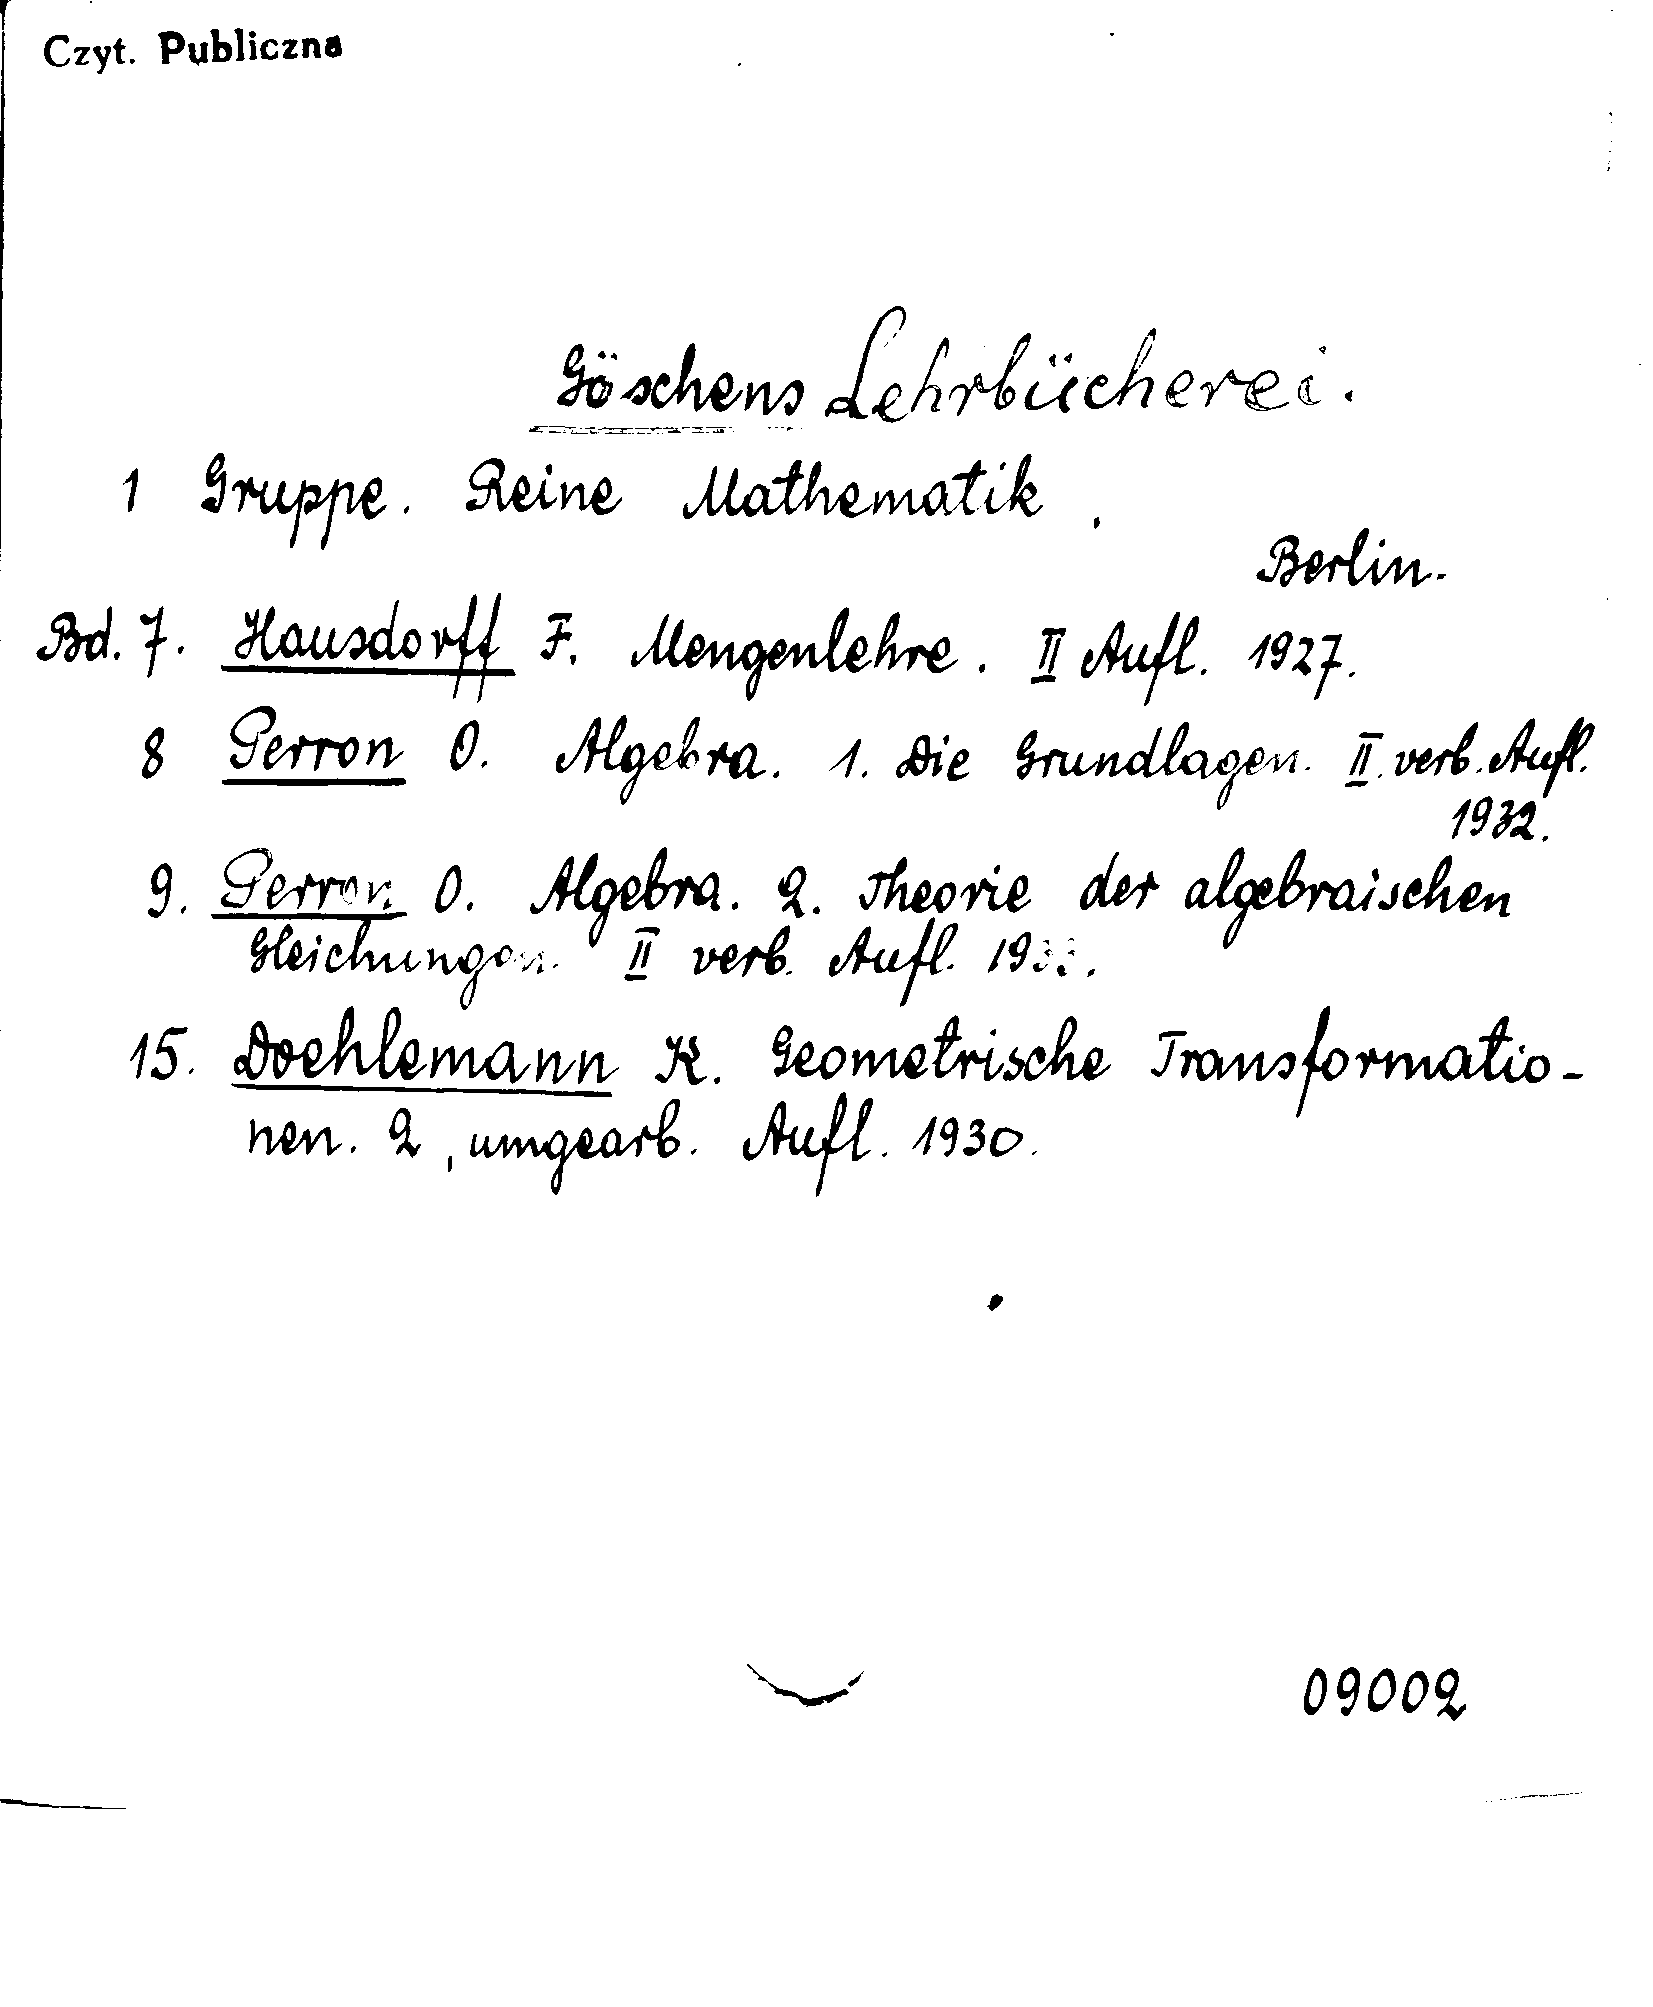 Czyt. Publiczna
Göschens Lehrbücherei.
1 Gruppe. Reine Mathematik.
Berlin.
Bd. 7. Hausdorff F. Mengenlehre. II Aufl. 1927.
8 Perron O. Algebra. 1. Die Grundlagen. II. verb. Aufl.
1932.
9. Perron O. Algebra. 2. Theorie der algebraischen
Gleichungen. II verb. Aufl.
15. Doehlemann K. Geometrische Transformatio-
nen. 2, umgearb. Aufl. 1930.
09002